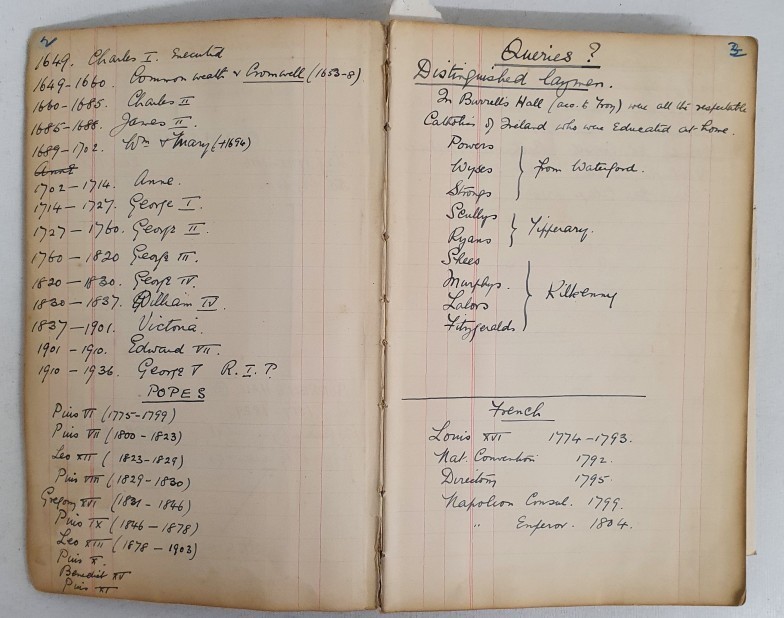 2
1649. Charles I. Executed
1649-1660. Commonwealth & Cromwell (1653-8)
1660-1685. Charles II
1685-1688. James II.
1689-1702. Wm & Mary (+1694)
Anne
1702-1714. Anne.
1714-1727. George I.
1727-1760. George II.
1760-1820 George III.
1820-1830. George IV.
1830-1837. William IV.
1837-1901. Victoria.
1901-1910. Edward VII.
1910-1936. George V R.I.P.
POPES
Pius VI (1775-1799)
Pius VII (1800-1823)
Leo XII (1823-1829)
Pius VIII (1829-1830)
Gregory XVI (1831-1846)
Pius IX (1846-1878)
Leo XIII (1878-1903)
Pius X.
Benedict XV
Pius XI
Queries?
Distinguished laymen.
In Burrell's Hall (acc. to Troy) were all the respectable
Catholics of Ireland who were Educated at home.
Powers
Wyses } from Waterford.
Strongs
Scullys
Ryans } Tipperary.
Shees
Murphys. } Kilkenny
Lalors
Fitzgeralds
French
Louis XVI 1774-1793.
Nat. Convention 1792.
Directory 1795.
Napoleon Consul. 1799.
" Emperor. 1804.